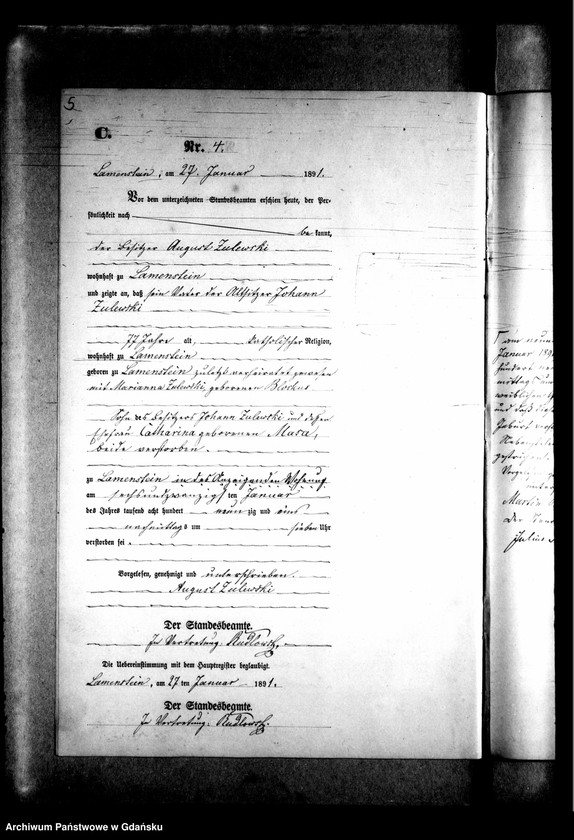 5
C.
Nr. 4.
Lamenstein, am 27. Januar 1891.
Vor dem unterzeichneten Standesbeamten erschien heute, der Per-
sönlichkeit nach
be kannt,
der Besitzer August Zulewski
wohnhaft zu Lamenstein
und zeigte an, daß sein Vater der Altsitzer Johann
Zulewski
77 Jahre alt, katholischer Religion,
wohnhaft zu Lamenstein
geboren zu Lamenstein zuletzt verheirathet gewesen
mit Marianna Zulewski, geborenen Blockus
Sohn des Besitzers Johann Zulewski und dessen
Ehefrau Catharina geborenen
beide verstorben.
zu Lamenstein in des Anzeigenden Wohnung
am sechsundzwanzigsten Januar
des Jahres tausend acht hundert neunzig und eins
nachmittags um sieben Uhr
verstorben sei.
Vorgelesen, genehmigt und unterschrieben.
August Zulewski
Der Standesbeamte.
In Vertretung:
Die Uebereinstimmung mit dem Hauptregister beglaubigt.
Lamenstein, am 27 ten Januar 1891.
Der Standesbeamte.
In Vertretung:
Januar 189
hundert
mittags
weiblichen
und daß
Martin
Der
Julius
Archiwum Państwowe w Gdańsku